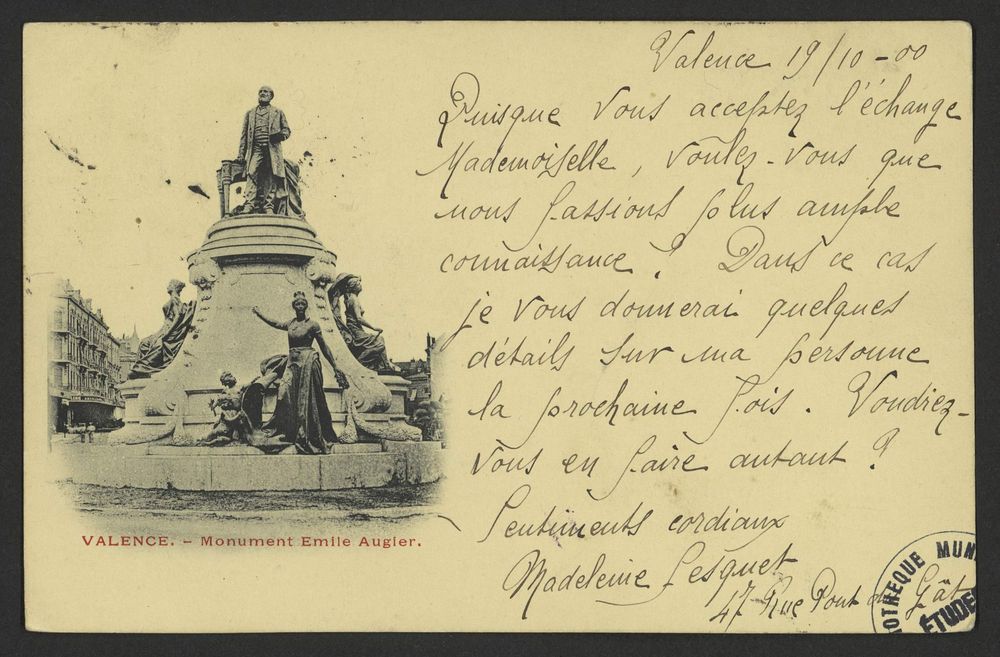 Valence 19/10-00
Puisque vous acceptez l'échange
Mademoiselle, voulez-vous que
nous fassions plus ample
connaissance ? Dans ce cas
je vous donnerai quelques
détails sur ma personne
la prochaine fois. Voudriez-
vous en faire autant ?
Sentiments cordiaux
Madeleine Lesquet
47 Rue Pont du Gât
VALENCE. - Monument Emile Augier.
OTHEQUE MUN
ÉTUDE